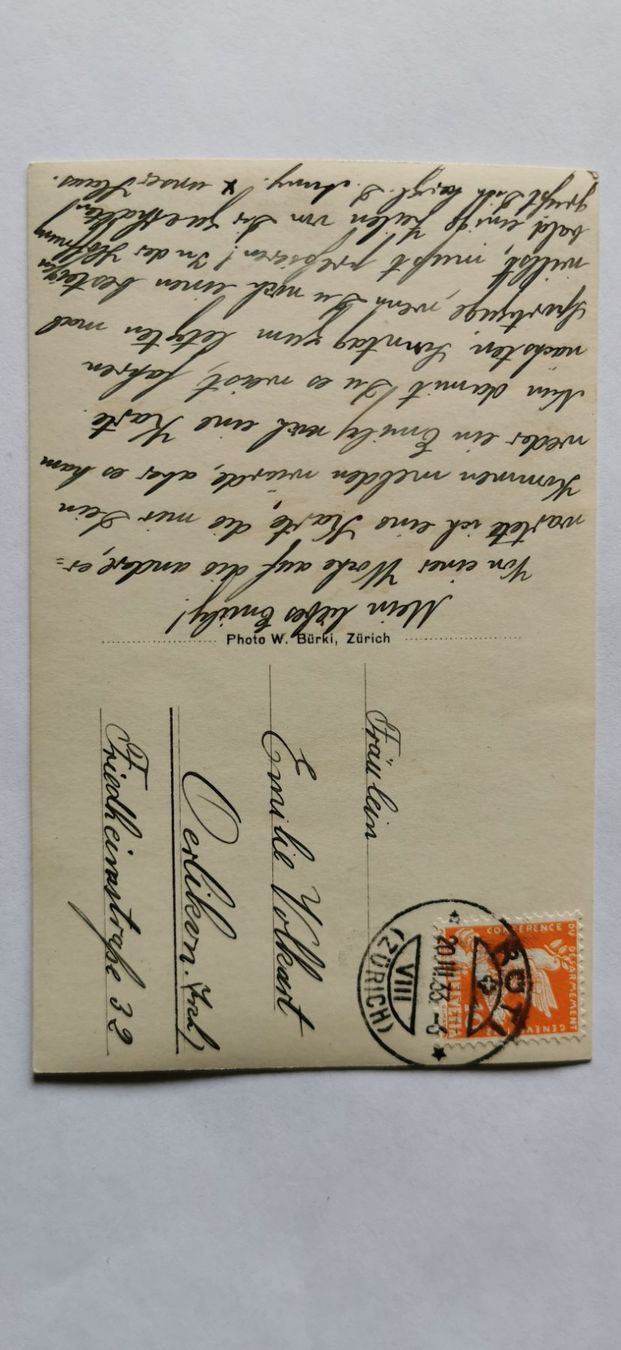 Mein liebes Emily!
Von einer Woche auf die andre, er=
wartete ich eine Karte, die mir Dein
Kommen melden würde, aber es kam
weder ein Emily noch eine Karte.
Nun damit Du es weist, fahren
nächsten Sonntag zum letzten mal
Sportzüge, wenn Du noch einen besteigen
willst, mußt pressieren! In der Hoffnung
bald einige Zeilen von Dir zu erhalten!
grüßt Dich herzl. D. Anny. x unser Haus.
Photo W. Bürki, Zürich
Fräulein
Emilie Volkart
Oerlikon.
Friedheimstraße 32
RÜTI
20.III.33.-6
VIII
(ZÜRICH)
CONFERENCE DU DESARMEMENT
GENEVE
HELVETIA